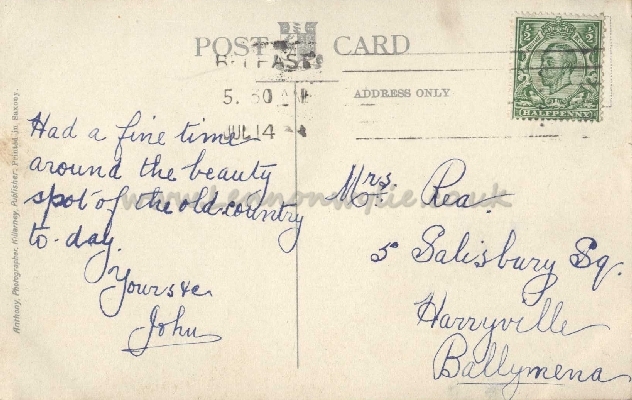 POST CARD
BELFAST
5. 30
JUL 14
ADDRESS ONLY
½ ½
HALFPENNY
Had a fine time
around the beauty
spot of the old country
to-day.
Yours &c.
John
Mrs Rea.
5 Salisbury Sq.
Harryville
Ballymena
Anthony, Photographer, Killarney, Publisher. Printed in Saxony.